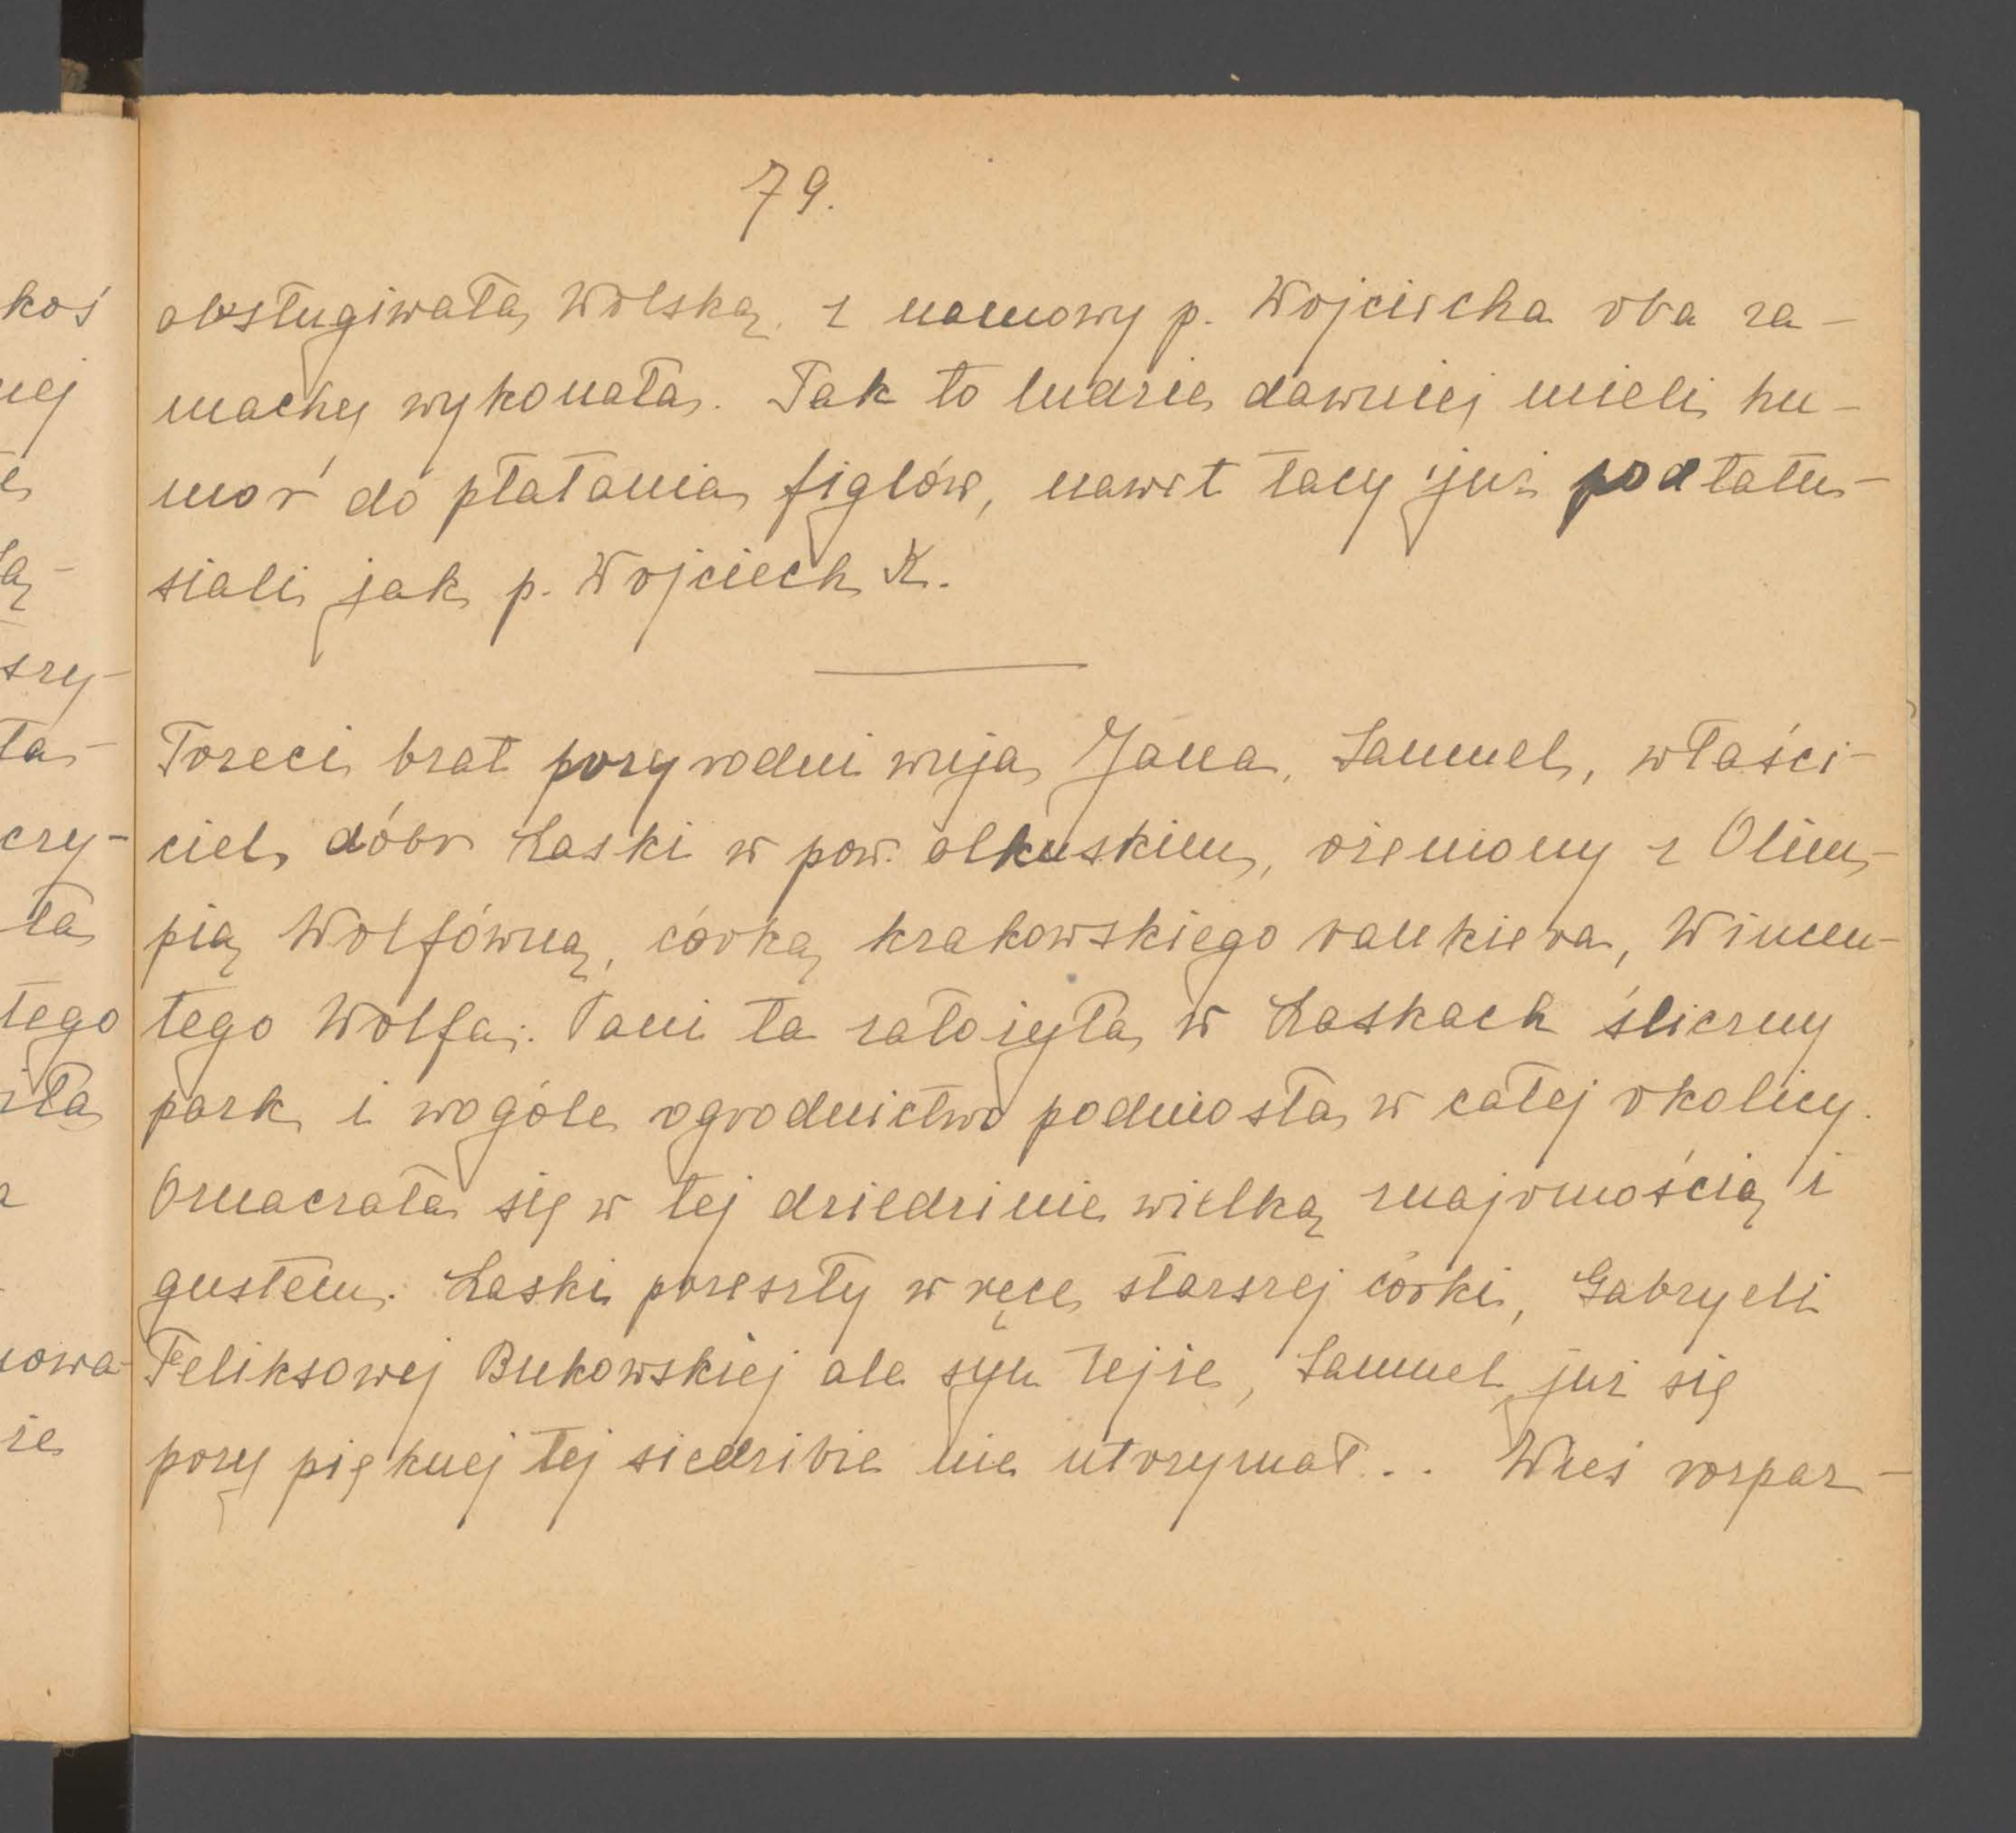 79.
obsługiwała Wolską, z namowy p. Wojciecha oba za-
machy wykonała. Tak to ludzie dawniej mieli hu-
mor do płatania figlów, nawet tacy już podtatu-
siali jak p. Wojciech K.
Trzeci brat przyrodni wuja Jana, Samuel, właści-
ciel dóbr Laski w pow. olkuskim, ożeniony z Olim-
pią Wolfówną, córką krakowskiego bankiera, Wincen-
tego Wolfa. Pani ta założyła w Laskach śliczny
park i wogóle ogrodnictwo podniosła w całej okolicy.
Oznaczała się w tej dziedzinie wielką znajomością i
gustem. Laski przeszły w ręce starszej córki, Gabryeli
Feliksowej Bukowskiej ale syn tejże, Samuel już się
przy pięknej tej siedzibie nie utrzymał... Wieś rozpar-
koś
nej
szy-
ła-
czy-
ła
tego
iła
nowa-
że